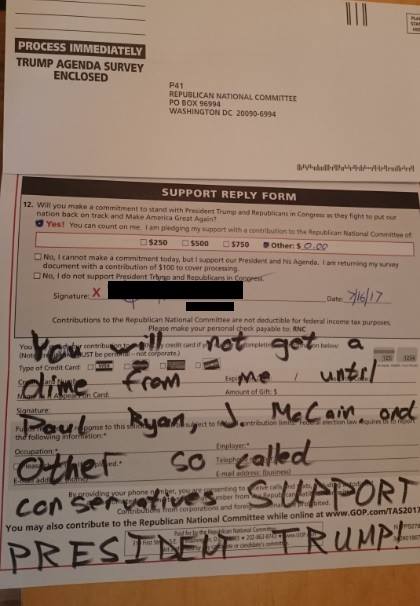 PROCESS IMMEDIATELY
TRUMP AGENDA SURVEY
ENCLOSED
P41
REPUBLICAN NATIONAL COMMITTEE
PO BOX 96994
WASHINGTON DC 20090-6994
SUPPORT REPLY FORM
12. Will you make a commitment to stand with President Trump and Republicans in Congress as they fight to put our
nation back on track and Make America Great Again?
Yes! You can count on me. I am pledging my support with a contribution to the Republican National Committee of:
$250 $500 $750 Other: $ 0.00
No, I cannot make a commitment today, but I support our President and his Agenda. I am returning my survey
document with a contribution of $100 to cover processing.
No, I do not support President Trump and Republicans in Congress.
Signature: X Date: 7/16/17
Contributions to the Republican National Committee are not deductible for federal income tax purposes.
Please make your personal check payable to: RNC
You will not get a
Type of Credit Card:
dime from me until
Amount of Gift: $
Signature:
Paul Ryan, J. McCain and
the following information:*
Occupation: Employer:*
Other so called
E-mail address (Business)
By providing your phone number, you are consenting to receive calls and
conservatives SUPPORT
Contributions from corporations and
You may also contribute to the Republican National Committee while online at www.GOP.com/TAS2017
Paid for by the Republican National Committee
PRESIDENT TRUMP!